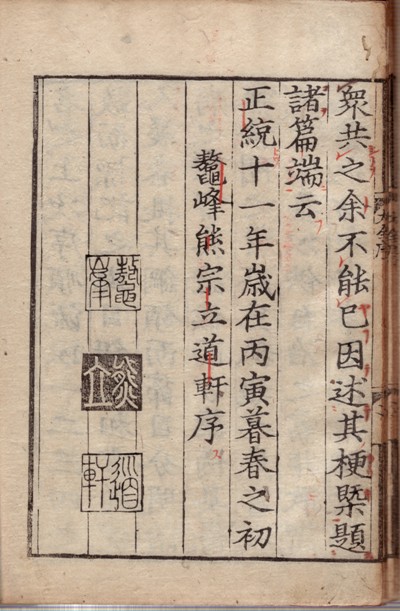 衆共之余不能已因述其梗槩題
諸篇端云
正統十一年歲在丙寅暮春之初
鼇峰熊宗立道軒序
鼇峯
熊立
道軒